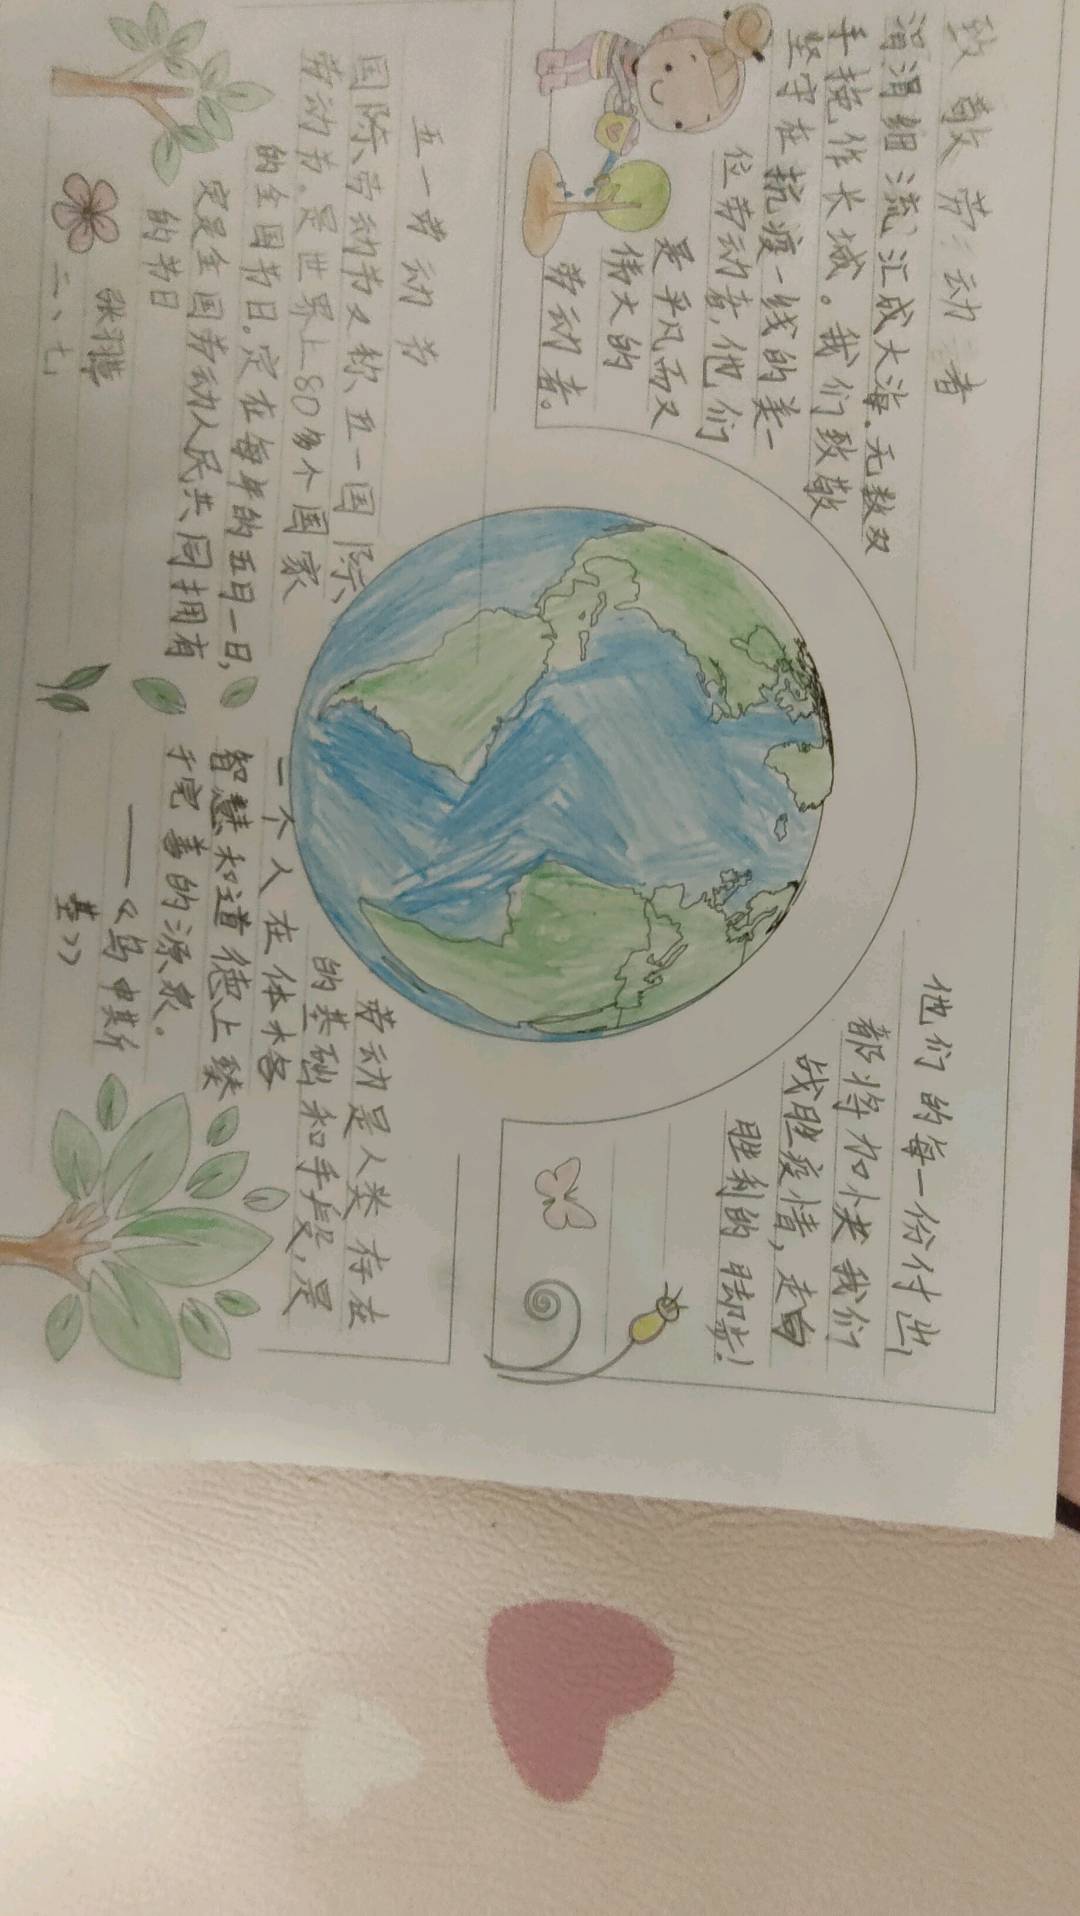 致敬劳动者
涓涓细流汇成大海.无数双
手挽作长城。我们致敬
坚守在抗疫一线的美一
位劳动者,他们
是平凡而又
伟大的
劳动者。
他们的每一份付出
都将加快我们
战胜疫情,走向
胜利的脚步!
五一劳动节
国际劳动节又称五一国际、
劳动节.是世界上80多个国家
的全国节日.定在每年的五月一日,
定是全国劳动人民共同拥有
的节日
二、七
劳动是人类存在
的基础和手段,是
一个人在体格
智慧和道德上臻
于完善的源泉。
——《乌申斯
基》